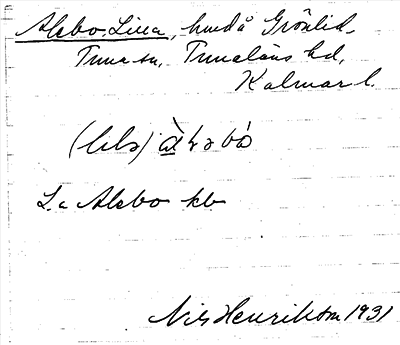 Alsbo Lilla, hmd å Grönlid,
Tuna sn, Tunaläns hd,
Kalmar l.
(lilla)
L:a Alsbo kb
Nils Henrikson 1931